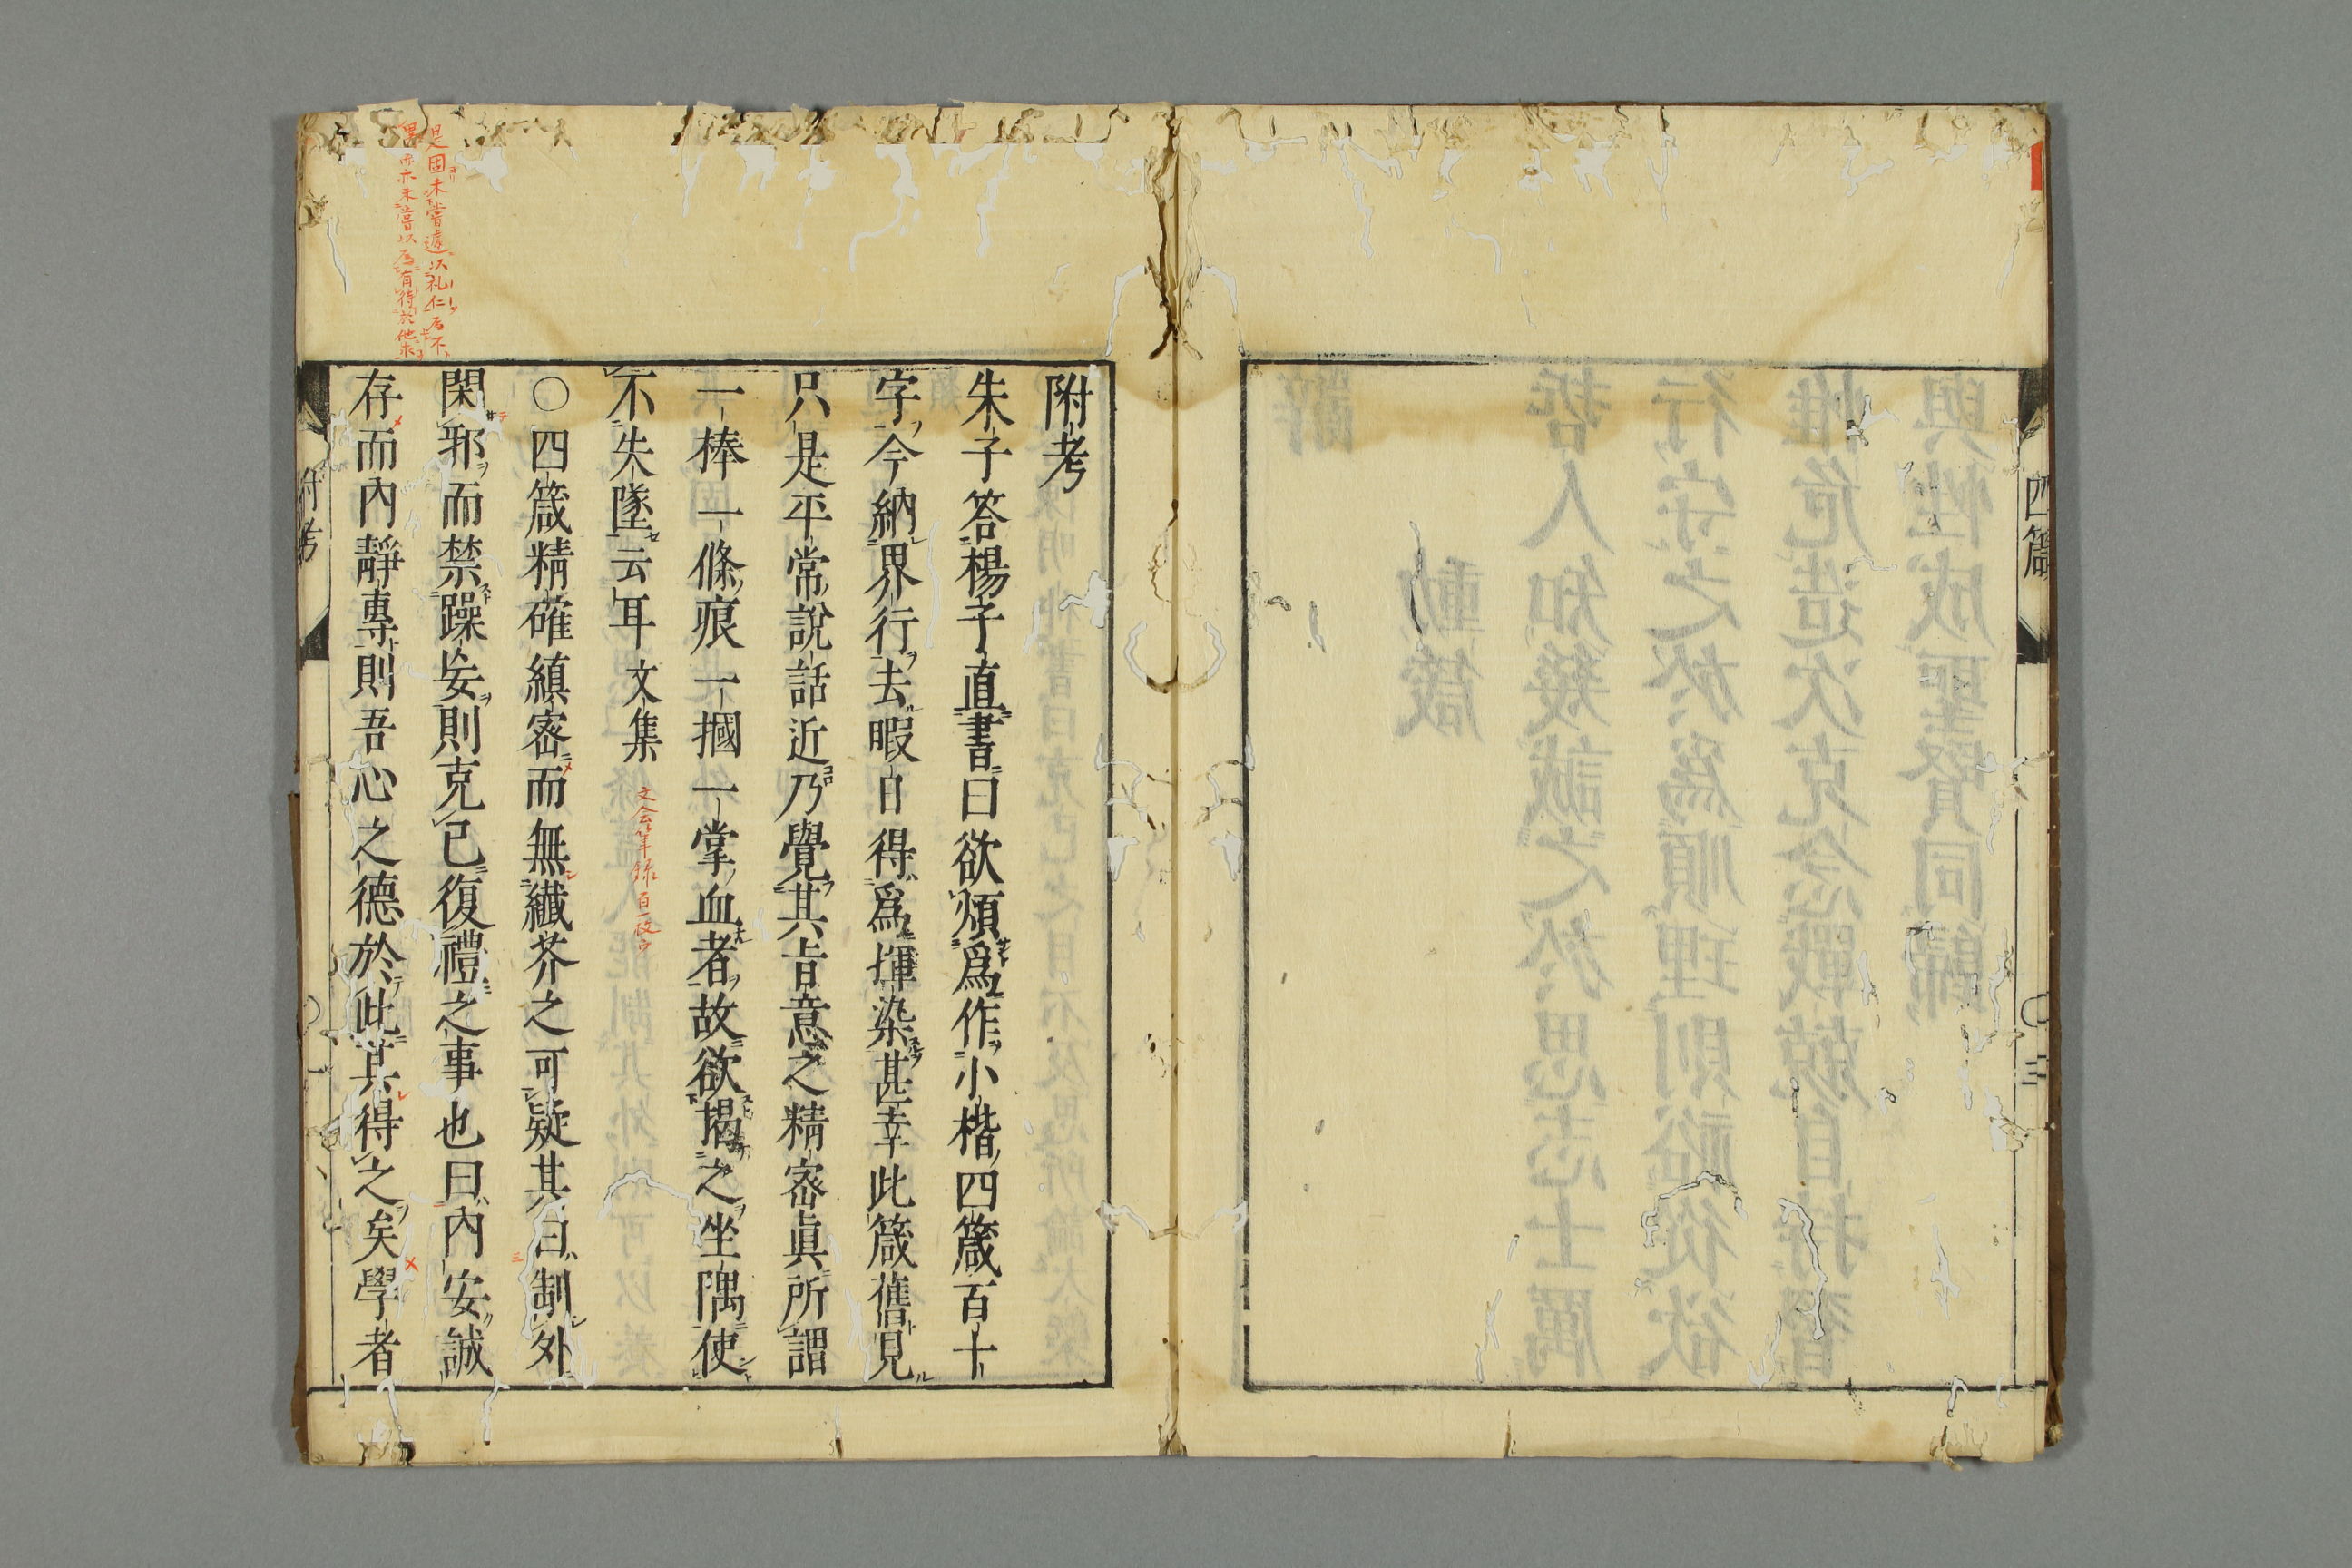 四箴
三
附考
朱子答楊子直書曰欲煩爲作小楷四箴百十
字今納界行去暇日得爲揮染甚幸此箴舊見
只是平常說話近乃覺其旨意之精密眞所謂
一棒一條痕一摑一掌血者故欲揭之坐隅使
不失墜云耳 文集
文会筆録
〇四箴精確縝密而無纖芥之可疑其曰制外
閑邪而禁躁妄則克己復禮之事也曰內安誠
存而內靜專則吾心之德於此其得之矣學者
是固未嘗遽以礼仁爲不
異亦未嘗以爲有待於他求
附考